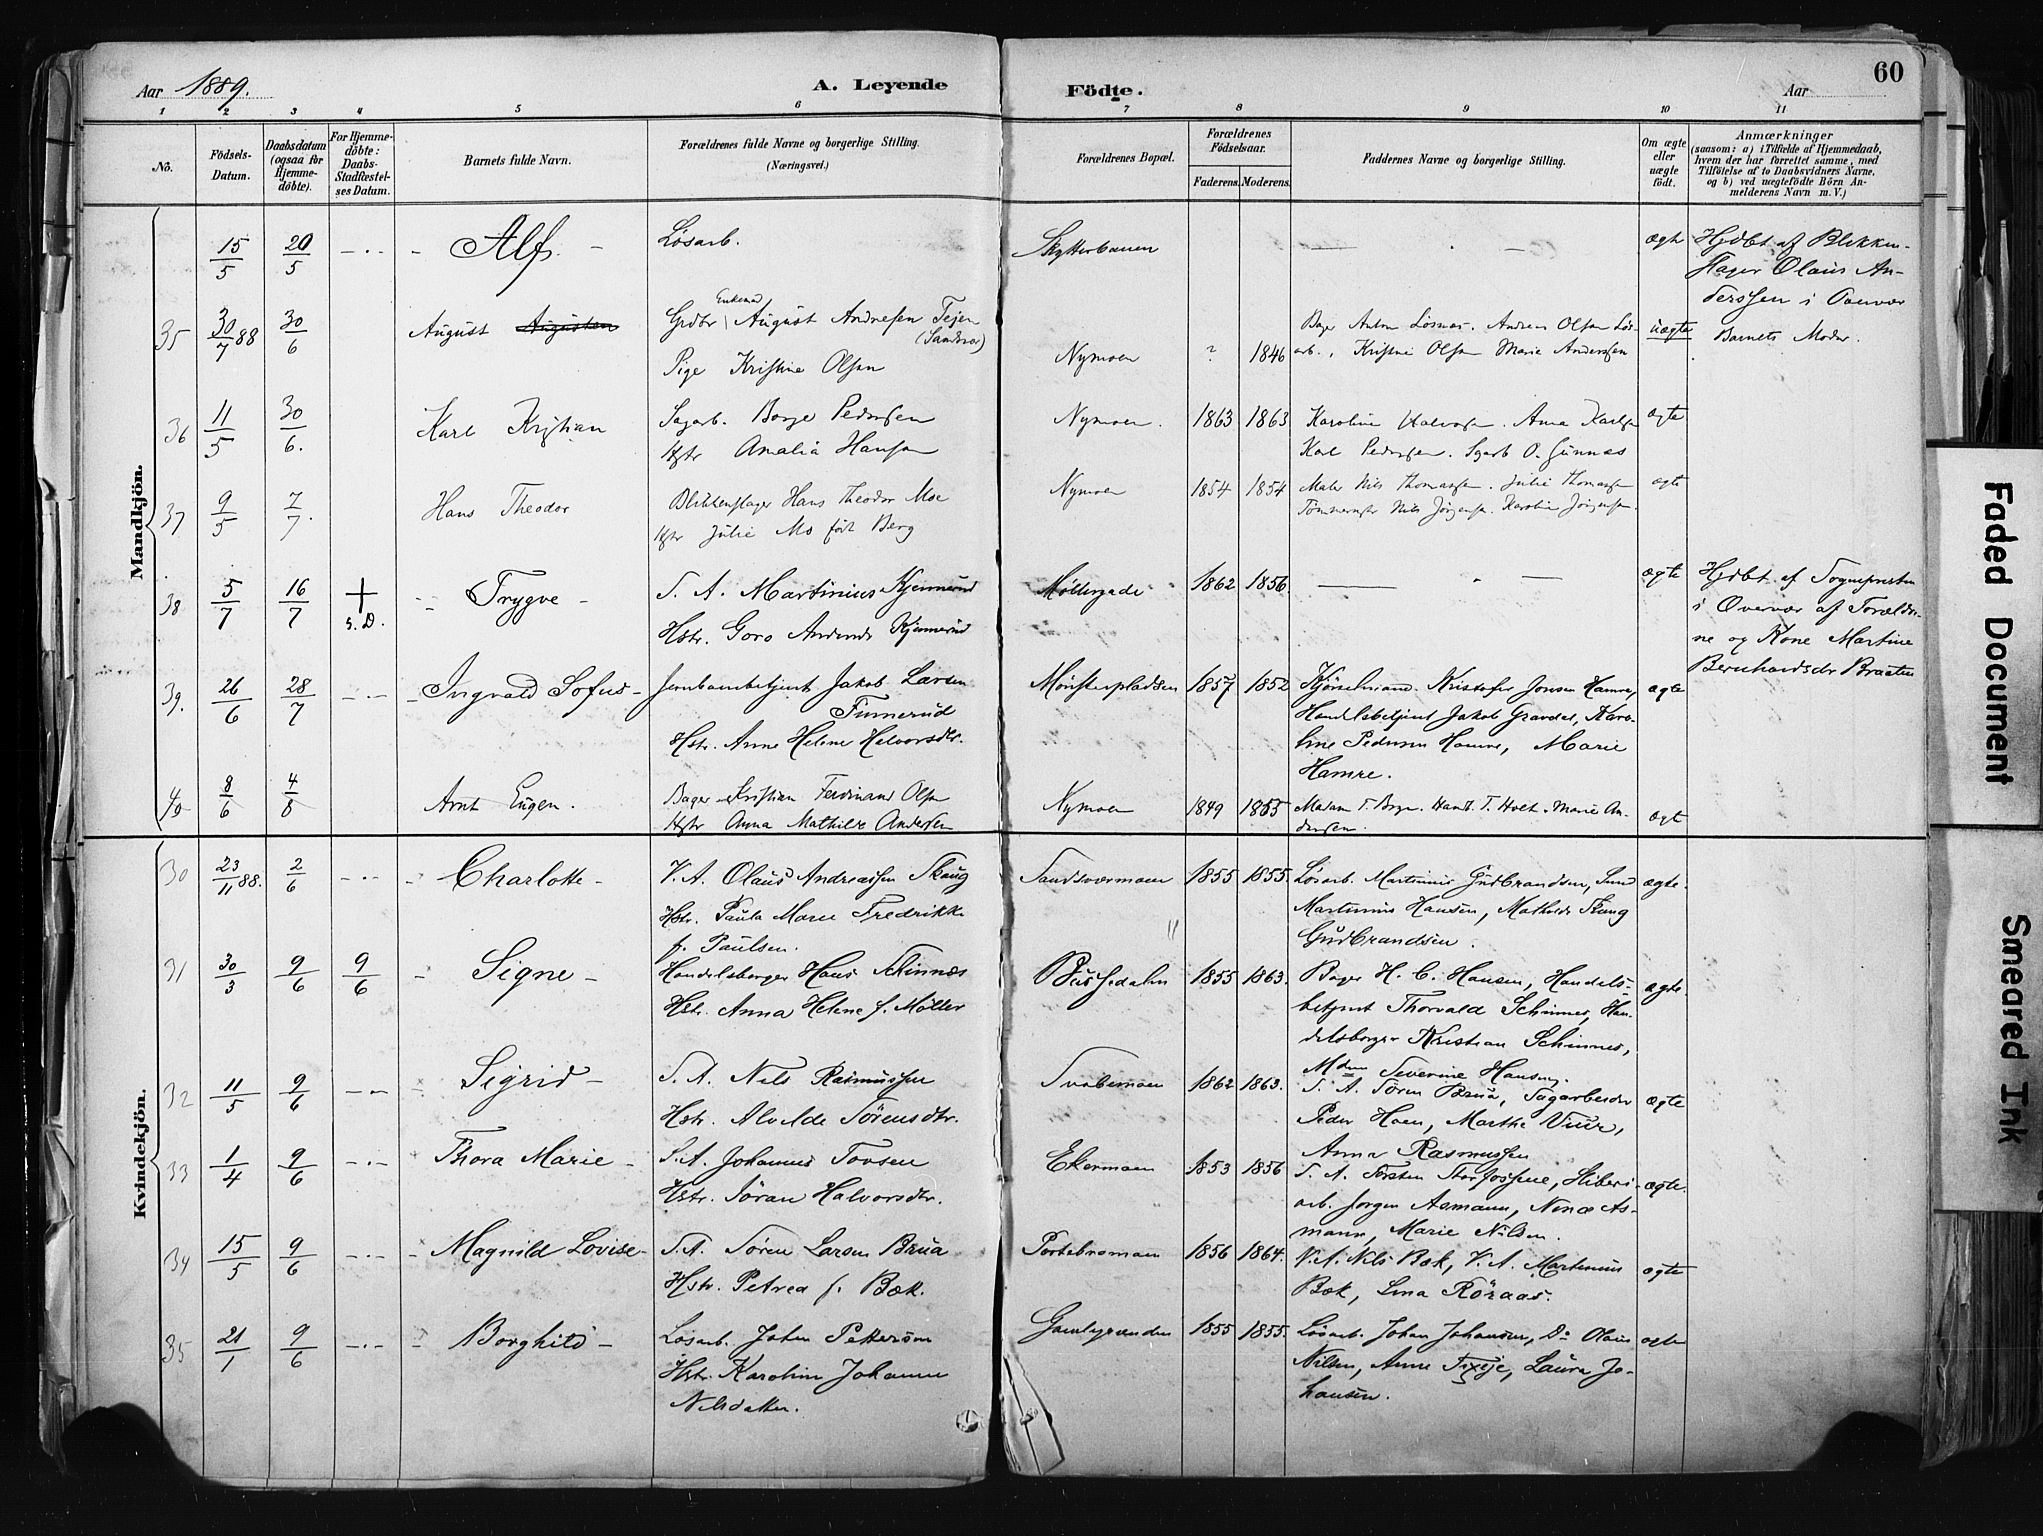 Aar 1889.
A. Levende Födte.
Aar
60
1 2 3 4 5 6 7 8 9 10 11
No.
Födsels-Datum.
Daabsdatum (ogsaa for Hjemme-döbte).
For Hjemme-döbte: Daabs-Stadfæstel-ses Datum.
Barnets fulde Navn.
Forældrenes fulde Navne og borgerlige Stilling. (Næringsvei.)
Forældrenes Bopæl.
Forældrenes Födselsaar.
Faderens. Moderens.
Faddernes Navne og borgerlige Stilling.
Om ægte eller uægte födt.
Anmærkninger
(saasom: a) i Tilfælde af Hjemmedaab,
hvem der har forrettet samme, med
Tilföielse af to Daabsvidners Navne,
og b) ved uægtefödte Börn An-
melderens Navn m. V.)
Mandkjön.
15/5 20/5 Alf. Løsarb. Skytterbanen ægte Hjdbt af Blikken-
slager Olaus An-
derssen i Overvær
35 30/7 88 30/6 August Augustsen Grdbr Enkemd August Andresen Tejen (Sandsvær)
Pige Kristine Olsen Nymoen ? 1846
Bager Anton Løsnæs. Andreas Olsen Løs-
arb., Kristine Olsen Marie Anderssen uægte Barnets Moder.
36 11/5 30/6. Karl Kristian Sagarb. Borge Pedersen
Hstr Amalia Hansen Nymoen. 1863 1863 Karoline Halvorsen. Anna Karlsen ægte
Karl Pedersen. Sgarb O. Gunnæs
37 9/5 7/7. Hans Theodor Blikkenslager Hans Theodor Moe
Hstr Julie Mo født Berg Nymoen 1854 1854 Maler Nils Thomassen. Julie Thomassen ægte
Tømmermstr Nils Jörgensen. Karoline Jörgensen.
38 5/7 16/7 + s. D. Trygve S. A. Martinius Kjennerud
Hstr. Goro Andersdr Kjennerud Møllergade 1862 1856. ægte Hjdbt af Sognepresten
i Overvær af Foræld-
ne og Kone Martine
Bernhardsdr Braaten
39. 26/6 28/7 Ingvald Sofus Jernbanebetjent Jakob Larsen
Funnerud
Hstr. Anne Helene Halvorsdtr. Mönsterpladsen 1857 1852 Kjørselmand Kristofer Jonsen Hamre, ægte
Handelsbetjent Jakob Gravdal, Karo-
line Pedersen Hamre, Marie
Hamre.
40 8/6 4/8 Arnt Eugen. Bager Kristian Ferdinand Olsen
Hstr Anna Mathilde Andersen Nymoen 1849 1855 Madam T. Borge. Handl. T. Holt. Marie An-
dersen. ægte
Kvindekjön.
30 23/11 88. 2/6 Charlotte V. A. Olaus Andreassen Skaug
Hstr. Paula Marie Fredrikke
f. Paulsen. Sandsværmoen 1855 1855. Løsarb. Martinius Gudbrandsen, Smed ægte.
Martinius Hansen, Mathilde Skaug
Gudbrandsen.
31 30/3 9/6 9/6 Signe Handelsborger Hans Schinnæs
Hstr. Anna Helene f. Møller Bussedalen 1855 1863. Bager H. C. Hansen, Handels- ægte.
betjent Thorvald Schinnes, Han-
delsborger Kristian Schinnes,
Mdm Severine Hansen.
32 11/5 9/6 Sigrid S. A. Nils Rasmussen
Hstr. Alvilde Sørensdtr. Svabemoen 1862 1863. S. A. Søren Brua, Sagarbeider ægte
Peder Hoen, Marthe Viur,
Anna Rasmussen
33 1/4 9/6 Thora Marie S. A. Johannes Tovsen
Hstr. Søran Halvorsdtr. Ekermoen 1853 1856 S. A. Torsten Thorfossene, Sliberi- ægte.
arb. Jorgen Asmann, Nina As-
mann, Marie Nilsen.
34 15/5 9/6 Magnild Lovise S. A. Søren Larsen Brua
Hstr. Petrea f. Bæk. Portebromoen 1856 1864. V. A. Nils Bæk, V. A. Martinius
Bæk, Lina Röraas. ægte
35 21/1 9/6 Borghild Løsarb. Johan Pettersen
Hstr. Karoline Johanne
Nilsdatter. Gamlegrenden 1855 1855. Løsarb. Johan Johansen, Do Olaus ægte
Nilsen, Anne Texeje, Laura Jo-
hansen.
Faded Document
Smeared Ink